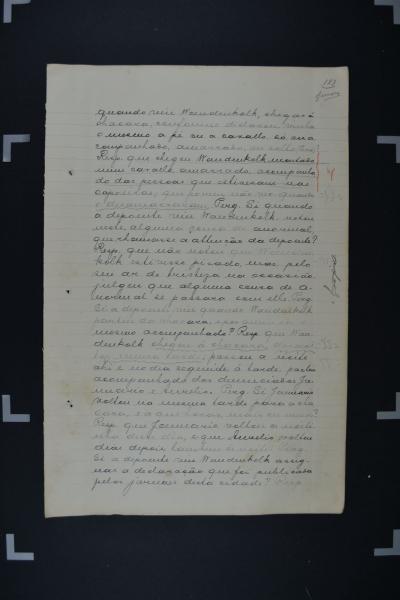 183
quando viu Wandenkolk, chegar á
chacara, conforme declarou vinha
o mesmo a pé ou a cavallo, só ou
acompanhado, amarrado, ou solto?
Resp. que chegou Wandenkolk montado
num cavallo amarrado, acompanha-
do das pessoas que estiveram nas
capoeiras,
o desamarraram. Perg. Si quando
a depoente viu Wandenkolk, notou
nelle alguma cousa de anormal,
que chamasse a attenção da depoente?
Resp. que não notou que Wanden-
kolk estivesse pisado, mas pelo
seu ar de tristeza na occasião
julgou que alguma cousa de a-
normal se passara com elle. Perg.
Si a depoente viu quando Wandenkolk
partiu da chacara,
mesmo acompanhado? Resp. que Wan-
denkolk chegou á chacara,
passou a noite
ahi e no dia seguinte á tarde, partiu
acompanhado dos denunciados Ja-
nuario e Aurelio. Perg. Si Januario
voltou na mesma tarde para a cha-
cara, e a que horas mais ou menos?
Resp. que Januario voltou á noite
desse dia, e que Aurelio voltou
dias depois, tambem á noite. Perg.
Si a depoente viu Wandenkolk assig-
nar a declaração que foi publicada
pelos jornaes desta cidade? Resp.